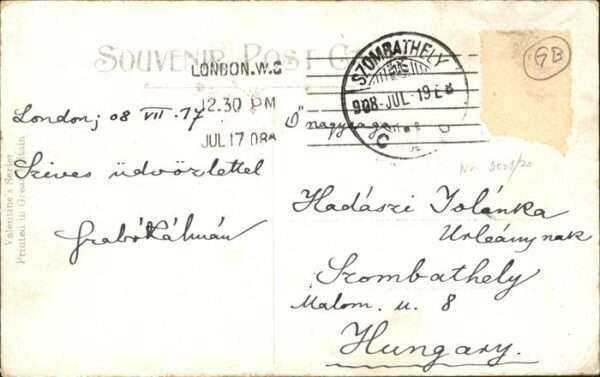 SOUVENIR POST
LONDON. W.C
12.30 PM
JUL 17 08
SZOMBATHELY
908-JUL-19
C
GB
London; 08 VII. 17
Szives üdvözlettel
Szabó Kálmán
Ő nagysaga
Hadászi Jolánka
Urleánynak
Szombathely
Malom. u. 8
Hungary.
Valentine's Series
Printed in Great Britain